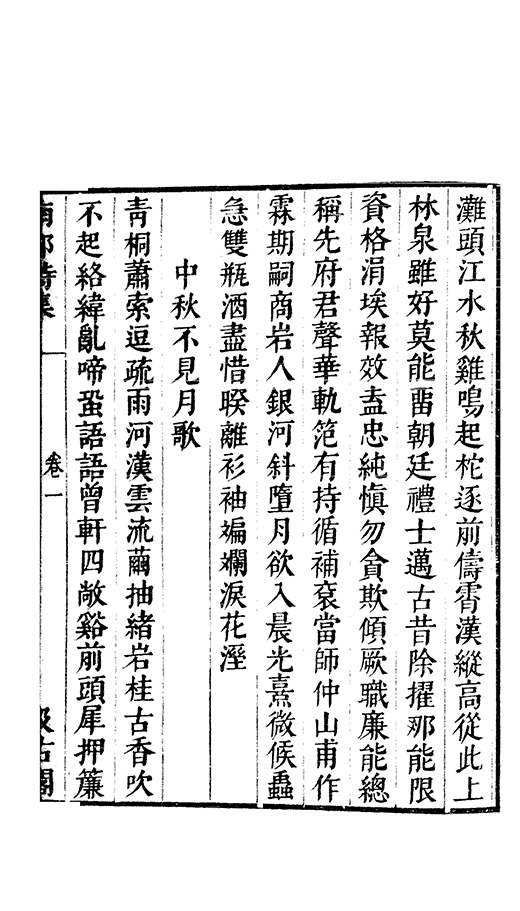 灘頭江水秋雞鳴起柁逐前儔霄漢縱高從此上
林泉雖好莫能畱朝廷禮士邁古昔除擢那能限
資格涓埃報效盍忠純愼勿貪欺傾厥職廉能總
稱先府君聲華軌范有持循補袞當師仲山甫作
霖期嗣商岩人銀河斜墮月欲入晨光熹微候蟲
急雙瓶酒盡惜暌離衫袖斒斕淚花溼
中秋不見月歌
靑桐蕭索逗疏雨河漢雲流繭抽緒岩桂古香吹
不起絡緯亂啼蛩語語曾軒四敞谿前頭犀押簾
南邨詩集
卷一
汲古閣